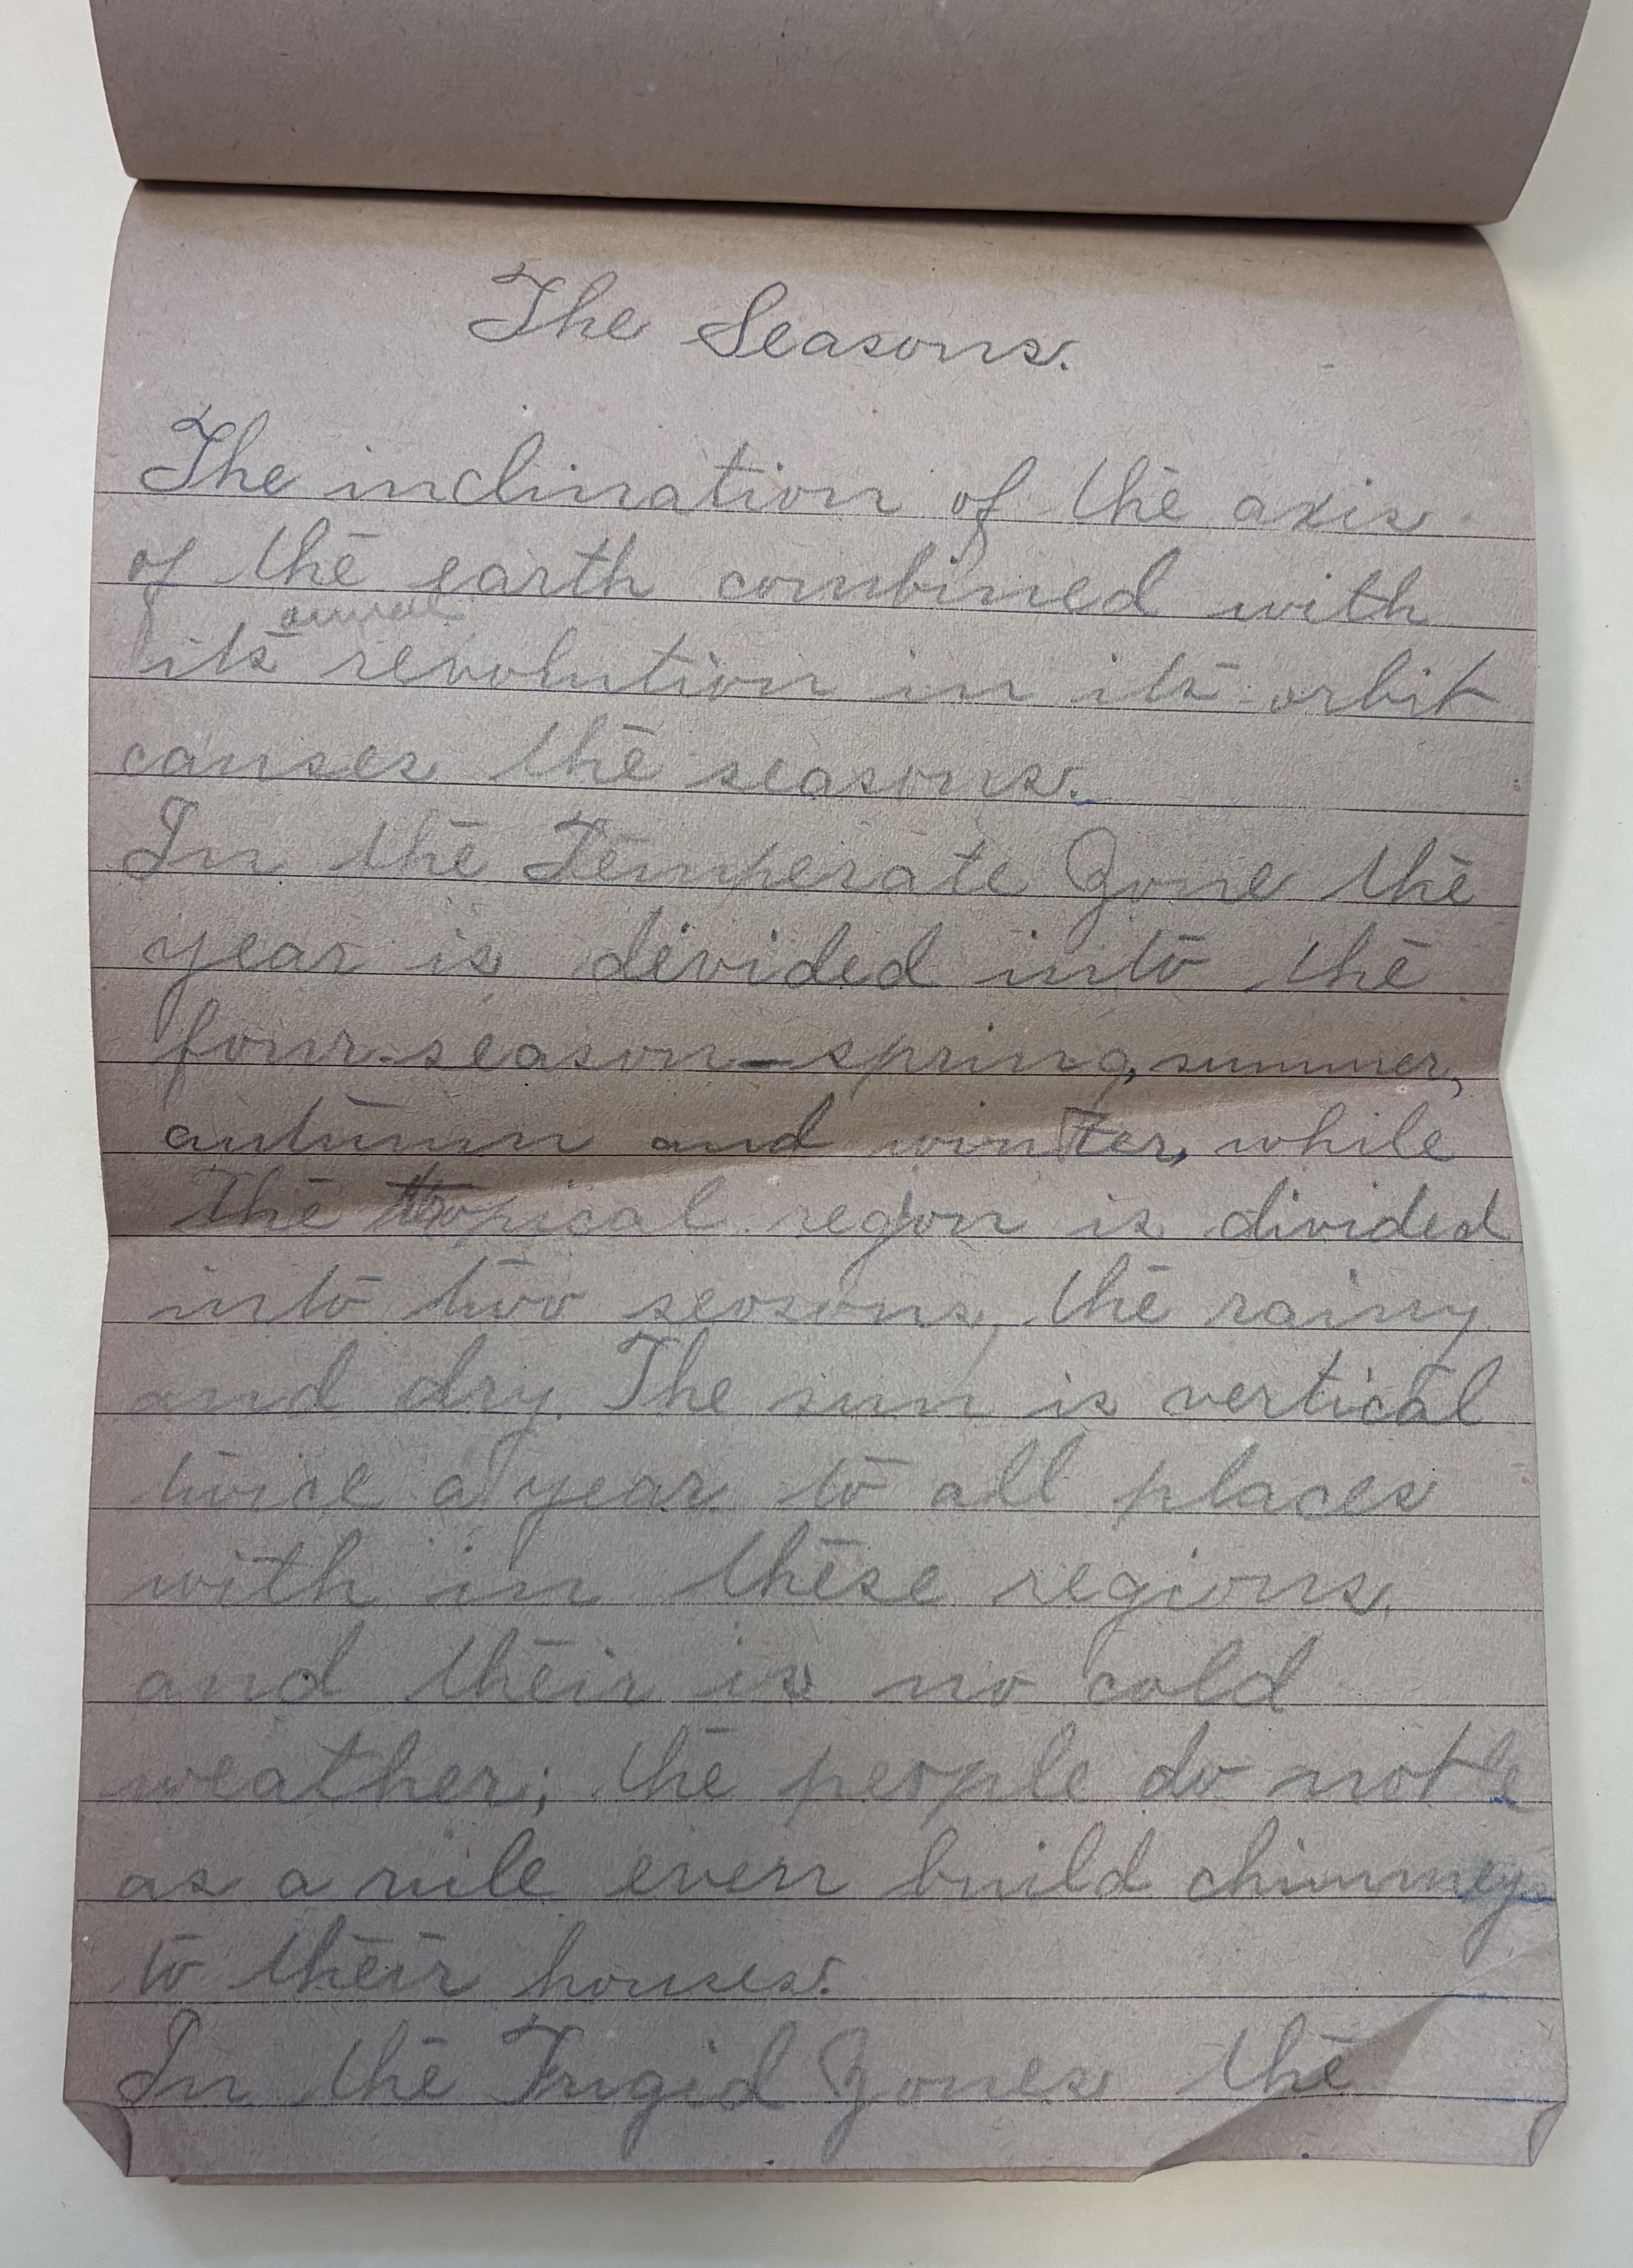 The Seasons.
The inclination of the axis
of the earth combined with
annual
its revolution in its orbit
causes the seasons.
In the Temperate Zone the
year is divided into the
four season—spring, summer,
autumn and winter, while
the tropical region is divided
into two seosons, the rainy
and dry. The sun is vertical
twice a year to all places
with in these regions.
and their is no cold
weather; the people do not
as a rule even build chimney
to their houses.
In the Frigid Zones the